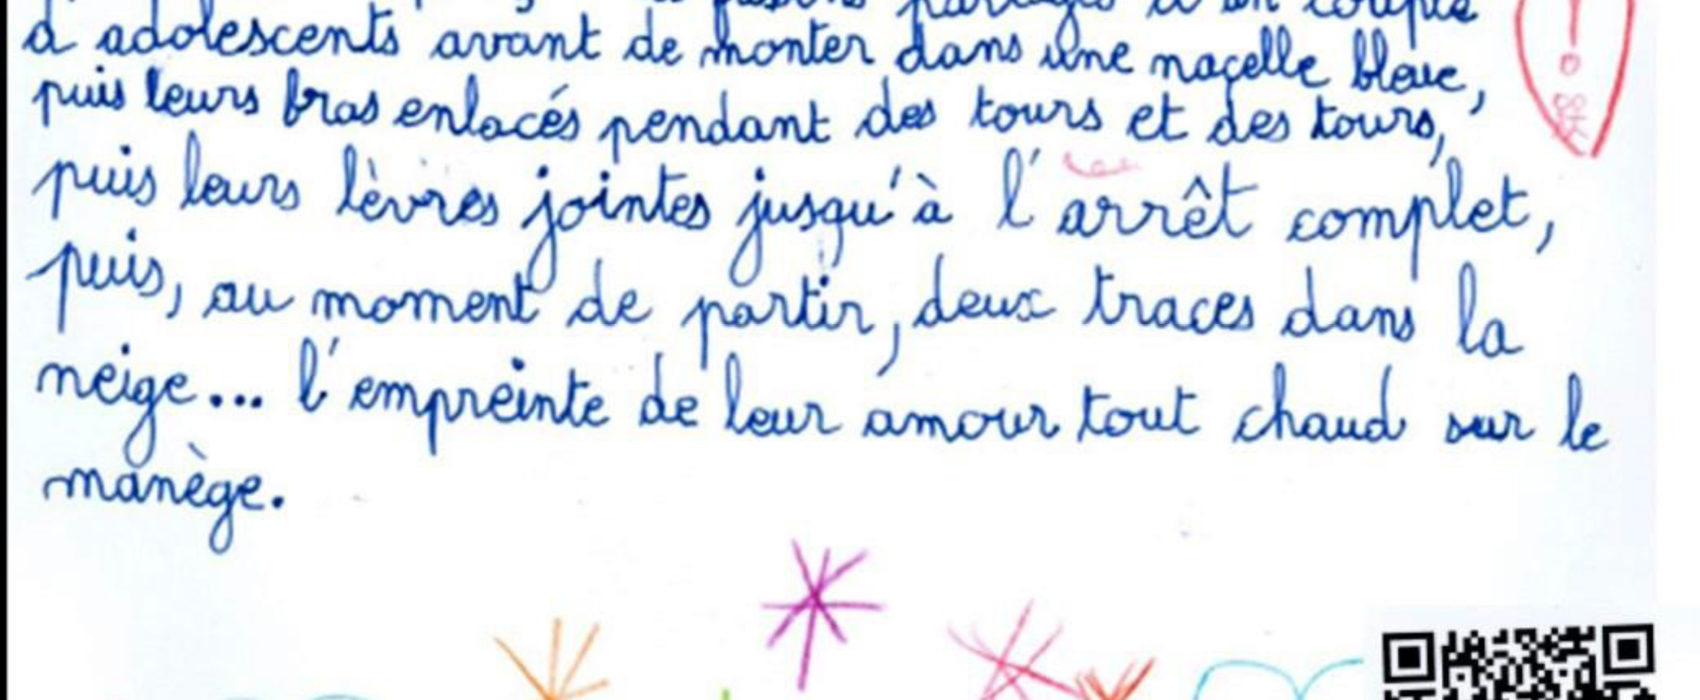 partagés d'un couple
d'adolescents avant de monter dans une nacelle bleue,
puis leurs bras enlacés pendant des tours et des tours,
puis leurs lèvres jointes jusqu'à l'arrêt complet,
puis, au moment de partir, deux traces dans la
neige... l'empreinte de leur amour tout chaud sur le
manège.